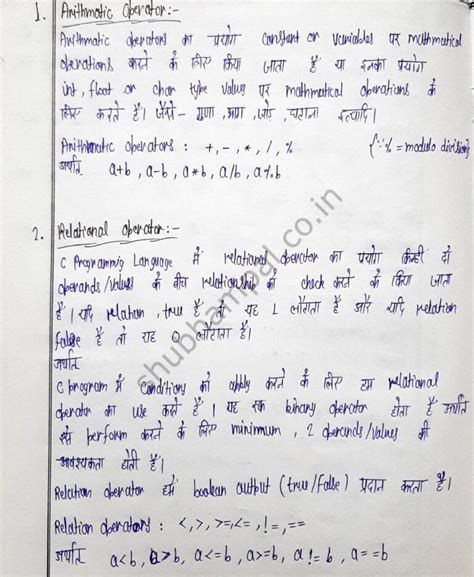 1. Arithmatic Operator:-
Arithmatic operators का प्रयोग constant or variables पर mathmatical
operations करने के लिए किया जाता है या इनका प्रयोग
int, float or char type values पर mathmatical operations के
लिए करते हैं। जैसे- गुणा, भाग, जोड़, घटाना इत्यादि।
Arithmatic operators : +, -, *, /, % {∵% = modulo division}
अर्थात a+b, a-b, a*b, a/b, a%b
2. Relational Operator:-
C Programmig Language में relational operator का प्रयोग किन्ही दो
operands/values के बीच relationship को check करने के किया जाता
है। यदि relation, true है तो यह 1 लौटाता है और यदि relation
false है तो यह 0 लौटाता है।
अर्थात
C program में conditions को apply करने के लिए हम relational
operator का use करते हैं। यह एक binary operator होता है अर्थात
इसे perform करने के लिए minimum, 2 operands/values की
आवश्यकता होती है।
Relation operator हमें boolean output (true/false) प्रदान करता है।
Relation operators : <, >, >=, <=, !=, ==
अर्थात a<b, a>b, a<=b, a>=b, a!=b, a==b
shubhampal.co.in